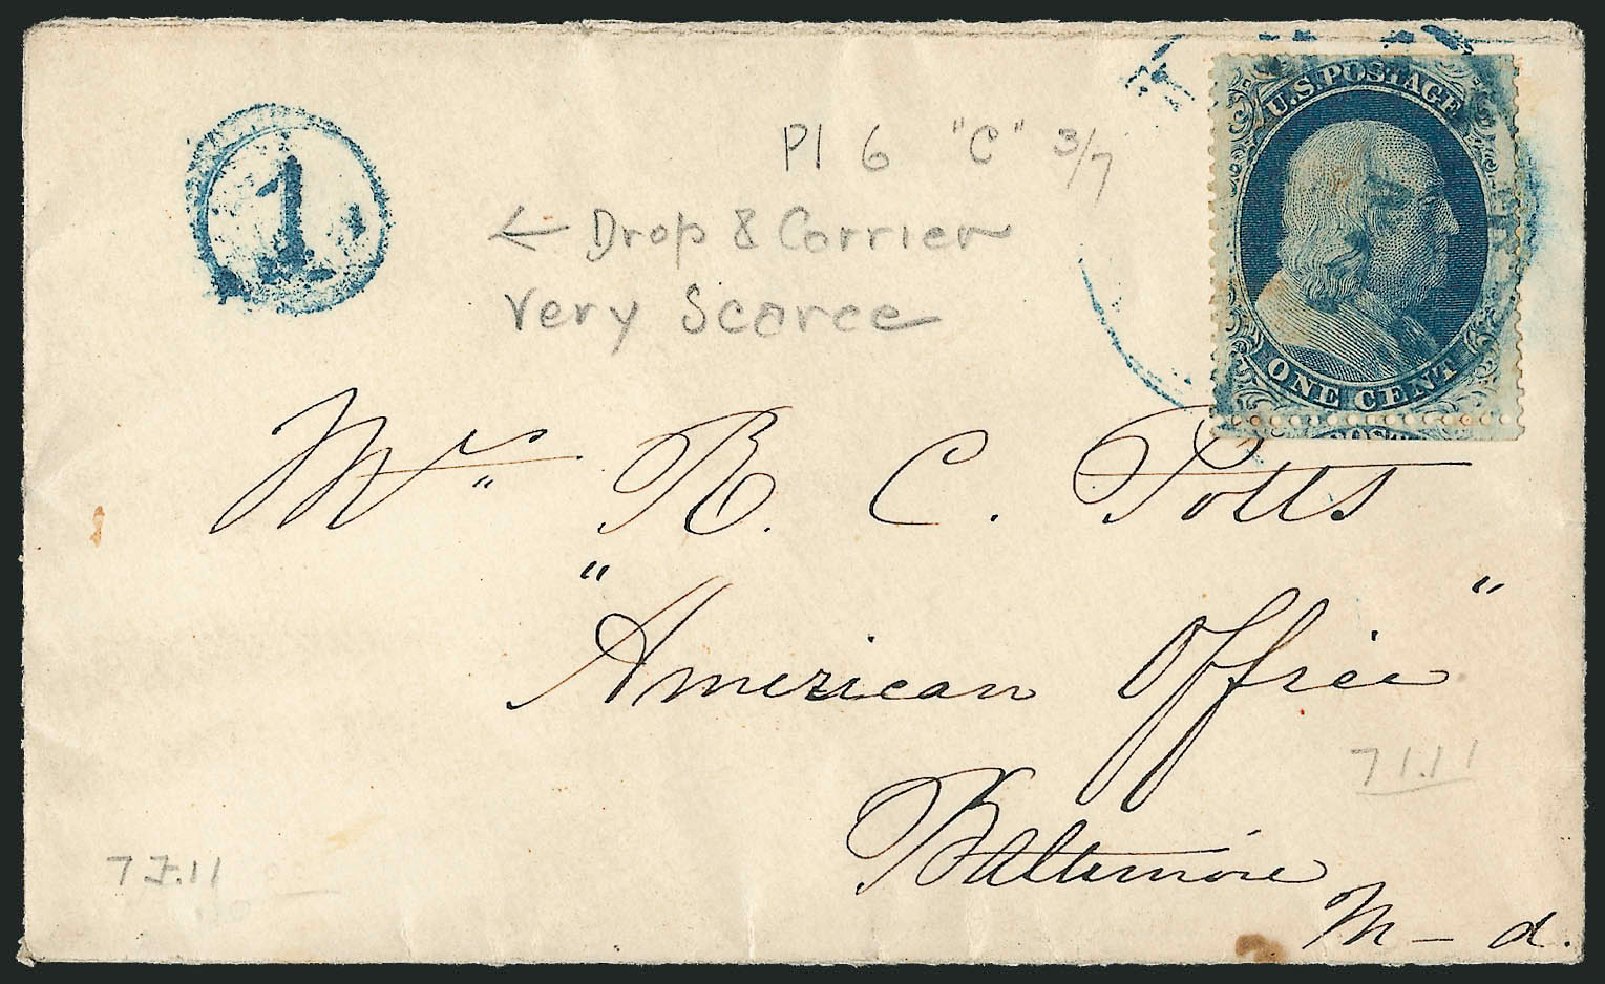 1
Pl 6 "C" 3/7
← Drop & Carrier
Very Scarce
U.S. POSTAGE
ONE CENT
Mr. R. C. Potts
"American Office"
Baltimore
M-d.